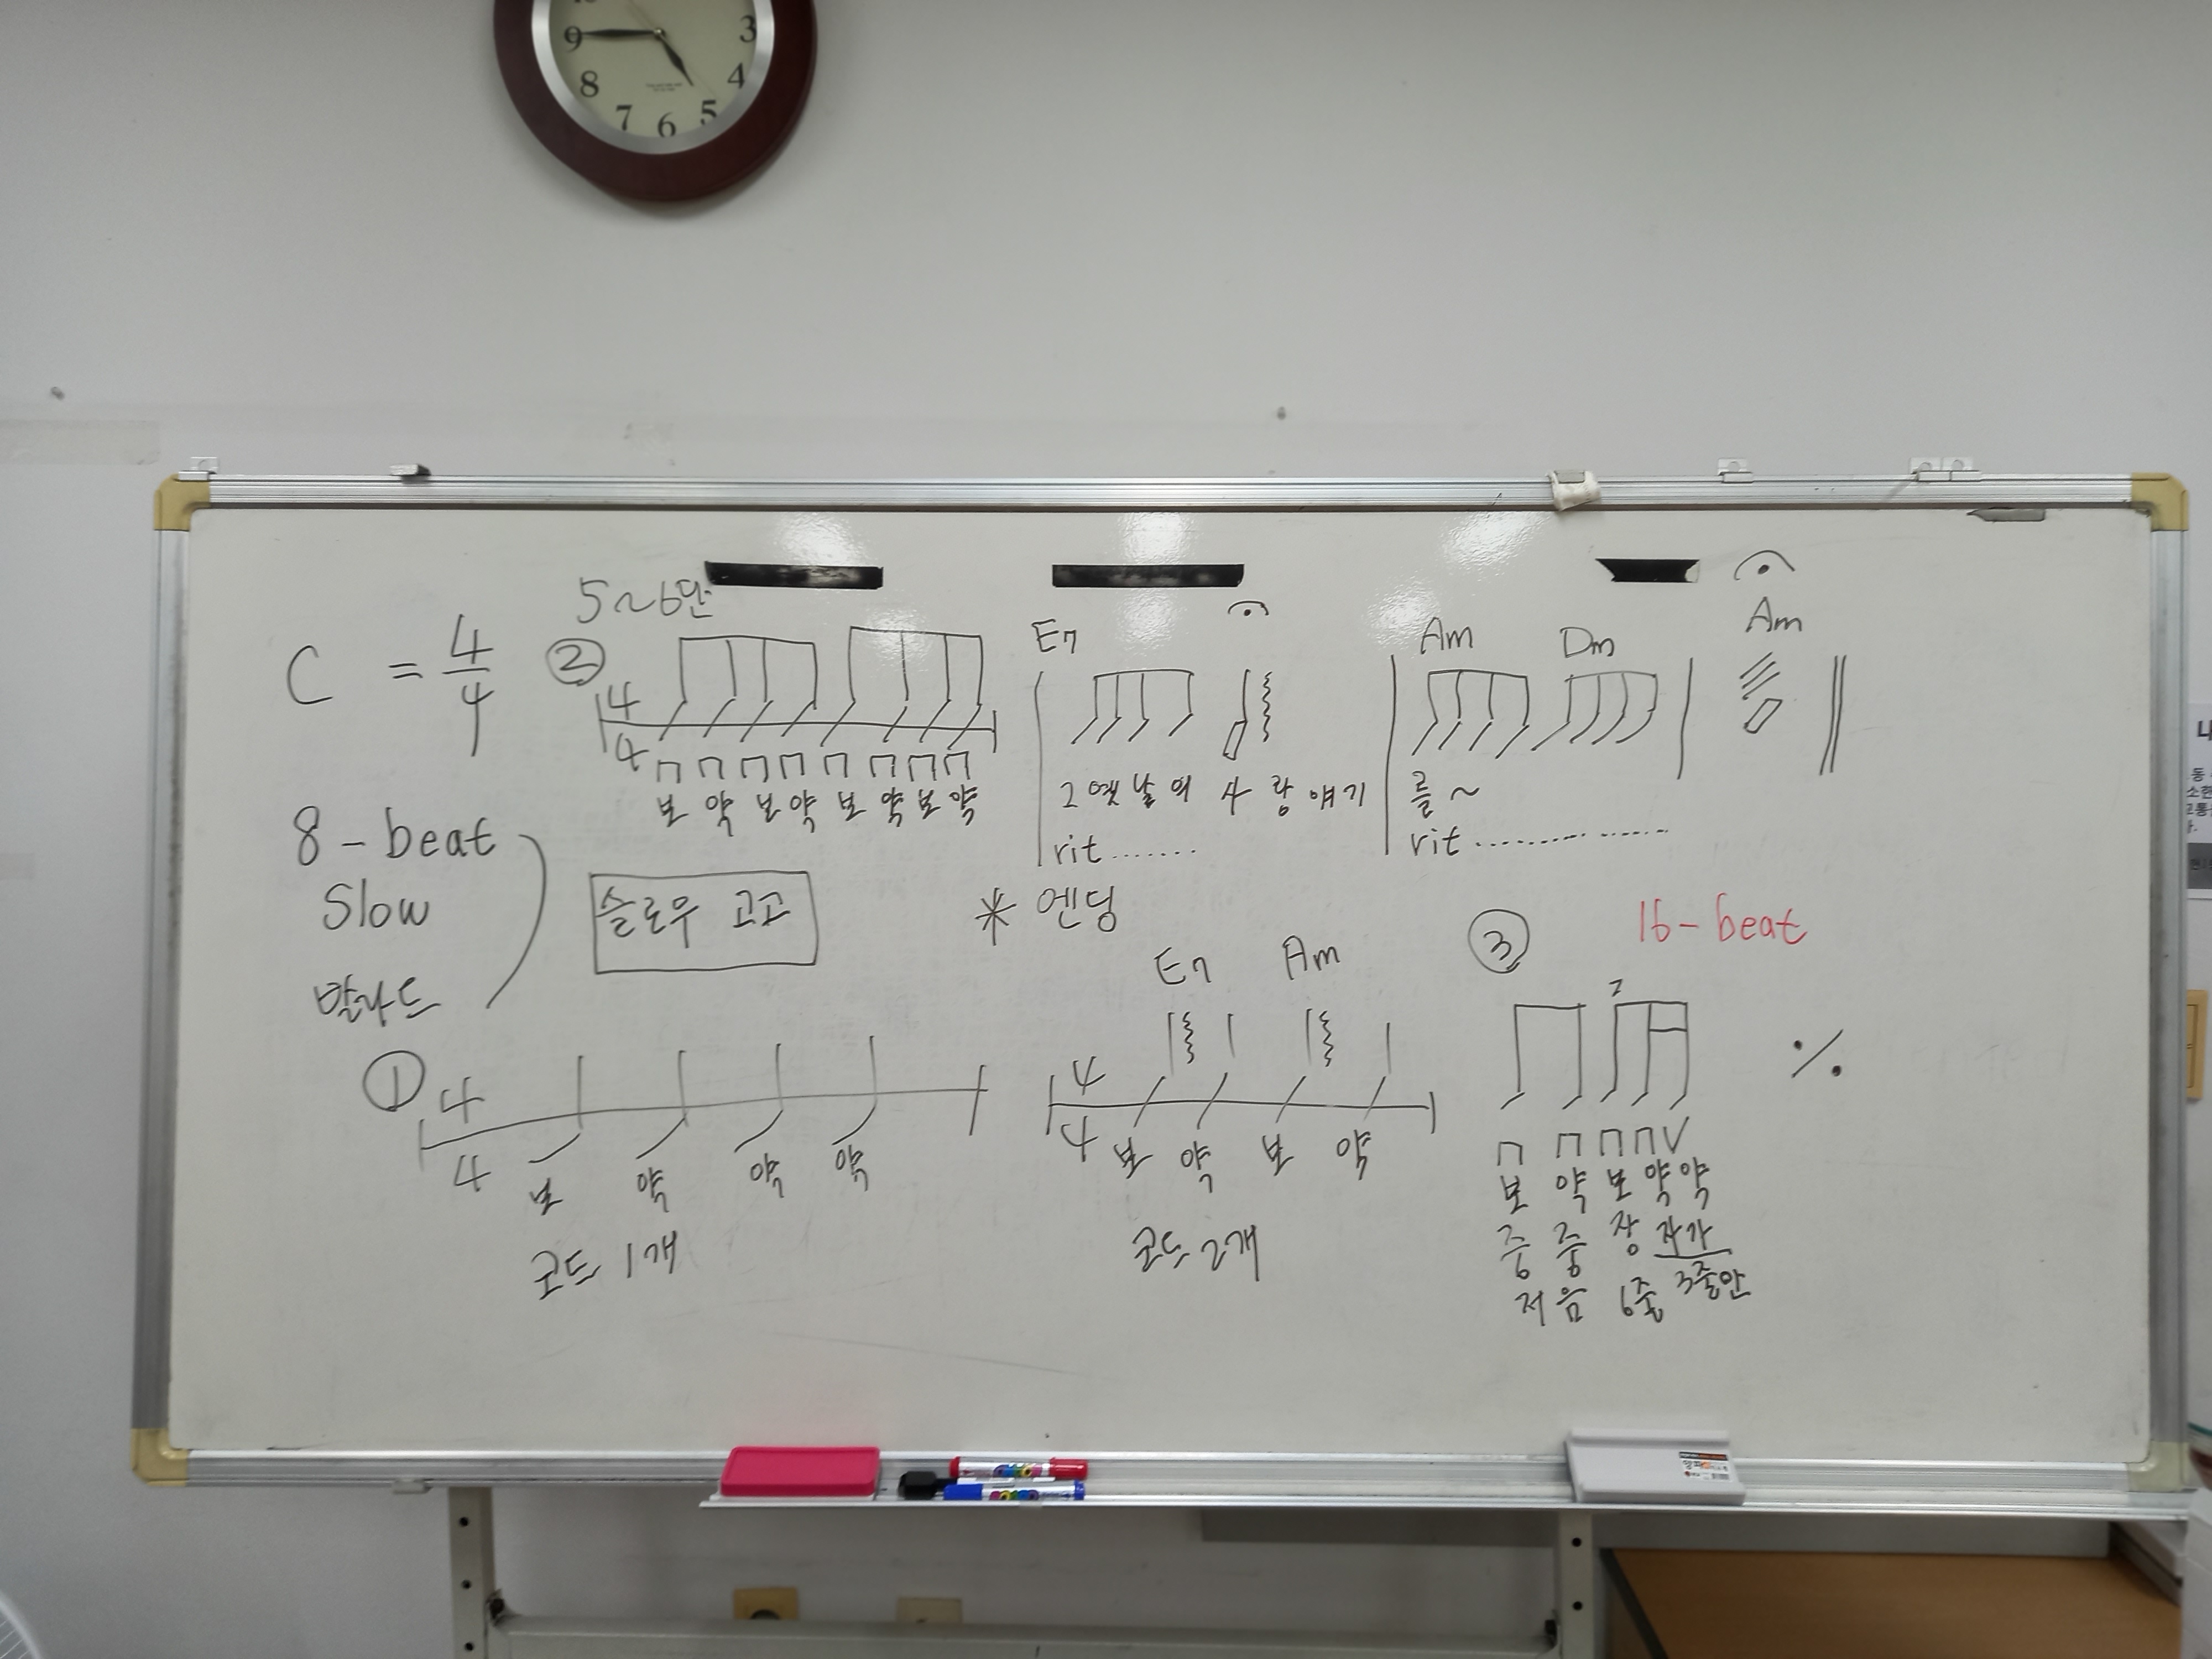 9 3
8 4
7 6 5
5~6단
C = 4/4
②
4/4
보 약 보 약 보 약 보 약
E7
그 옛 날 의 사 랑 얘 기
rit.......
Am Dm Am
를 ~
rit..................
8-beat
Slow
발라드
슬로우 고고
* 엔딩
①
4/4
보 약 약 약
코드 1개
E7 Am
4/4
보 약 보 약
코드 2개
③
16-beat
보 약 보 약 약
쿵 쿵 장 자가
저음 6줄 3줄만